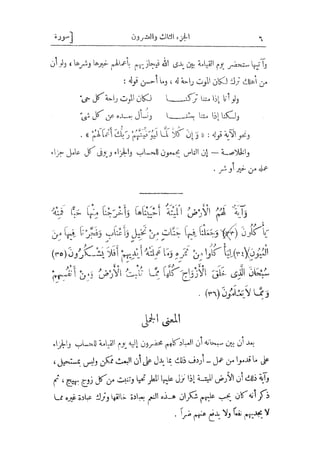 ٦ الجزء الثالث والعشرون [سورة
وآتيها ستحضر يوم القيامة بين يدى الله فيجازيهم بأعمالهم خيرها وشرها، ولو أن
من أهلك ترك لكان الموت راحة له، وما أحسن قوله:
ولو أنا إذا متنا تركنا لكان الموت راحة كل حىّ
ولكنّا إذا متنا بعثنا ونُسأل بعده عن كل شىّ
ونحو الآية قوله: «وَإِنَّ كُلًّا لَمَّا لَيُوَفِّيَنَّهُمْ رَبُّكَ أَعْمَالَهُمْ».
والخلاصة – إن الناس يجمعون للحساب والجزاء ويوفى كل عامل جزاء
عمله من خير أو شر.
وَآيَةٌ لَهُمُ الْأَرْضُ الْمَيْتَةُ أَحْيَيْنَاهَا وَأَخْرَجْنَا مِنْهَا حَبًّا فَمِنْهُ
يَأْكُلُونَ (٣٣) وَجَعَلْنَا فِيهَا جَنَّاتٍ مِنْ نَخِيلٍ وَأَعْنَابٍ وَفَجَّرْنَا فِيهَا مِنَ
الْعُيُونِ (٣٤) لِيَأْكُلُوا مِنْ ثَمَرِهِ وَمَا عَمِلَتْهُ أَيْدِيهِمْ أَفَلَا يَشْكُرُونَ (٣٥)
سُبْحَانَ الَّذِى خَلَقَ الْأَزْوَاجَ كُلَّهَا مِمَّا تُنْبِتُ الْأَرْضُ وَمِنْ أَنْفُسِهِمْ
وَمِمَّا لَا يَعْلَمُونَ (٣٦).
المعنى الجملى
بعد أن بين سبحانه أن العباد كلهم محضرون إليه يوم القيامة للحساب والجزاء
على ما قدموا من عمل – أردف ذلك بما يدل على أن البعث ممكن وليس بمستحيل،
وآية ذلك أن الأرض الميتة إذا نزل عليها المطر تحيا وتنبت من كل زوج بهيج، ثم
ذكر أنه كان يجب عليهم شكران هذه النعم بعبادة خالقها وترك عبادة غيره مما
لا يجديهم نفعا ولا يدفع عنهم ضرا.